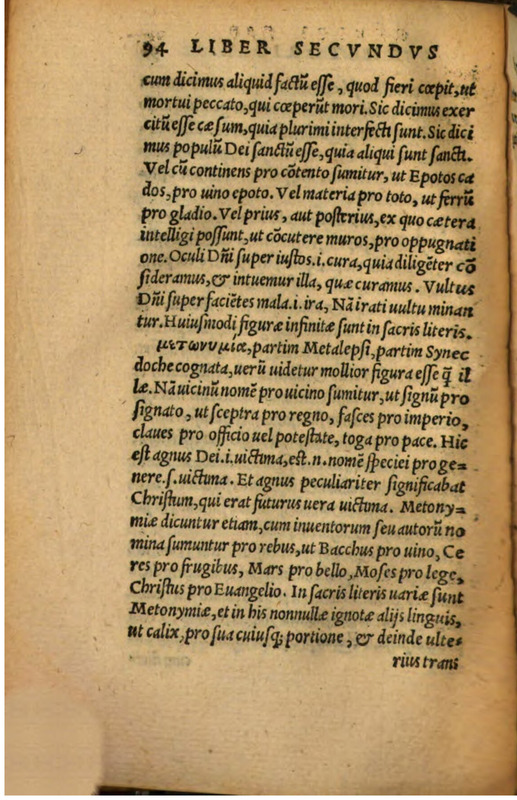 94 LIBER SECVNDVS
cum dicimus aliquid factũ esse, quod fieri cœpit, ut
mortui peccato, qui cœperũt mori. Sic dicimus exer
citũ esse cæsum, quia plurimi interfecti sunt. Sic dici
mus populũ Dei sanctũ esse, quia aliqui sunt sancti.
Vel cũ continens pro cõtento sumitur, ut Epotos ca
dos, pro uino epoto. Vel materia pro toto, ut ferrũ
pro gladio. Vel prius, aut posterius, ex quo cætera
intelligi possunt, ut cõcutere muros, pro oppugnati
one. Oculi Dñi super iustos .i. cura, quia diligẽter cõ
sideramus, & intuemur illa, quæ curamus. Vultus
Dñi super faciẽtes mala .i. ira, Nã irati uultu minan
tur. Huiusmodi figuræ infinitæ sunt in sacris literis.
μετωνυμία, partim Metalepsi, partim Synec
doche cognata, uerũ uidetur mollior figura esse q̃ il
læ. Nã uicinũ nomẽ pro uicino sumitur, ut signũ pro
signato, ut sceptra pro regno, fasces pro imperio,
claues pro officio uel potestate, toga pro pace. Hic
est agnus Dei .i. uictima, est .n. nomẽ speciei pro ge=
nere .s. uictima. Et agnus peculiariter significabat
Christum, qui erat futurus uera uictima. Metony=
miæ dicuntur etiam, cum inuentorum seu autorũ no
mina sumuntur pro rebus, ut Bacchus pro uino, Ce
res pro frugibus, Mars pro bello, Moses pro lege,
Christus pro Euangelio. In sacris literis uariæ sunt
Metonymiæ, et in his nonnullæ ignotæ alijs linguis,
ut calix, pro sua cuiusq; portione, & deinde ulte=
rius trans